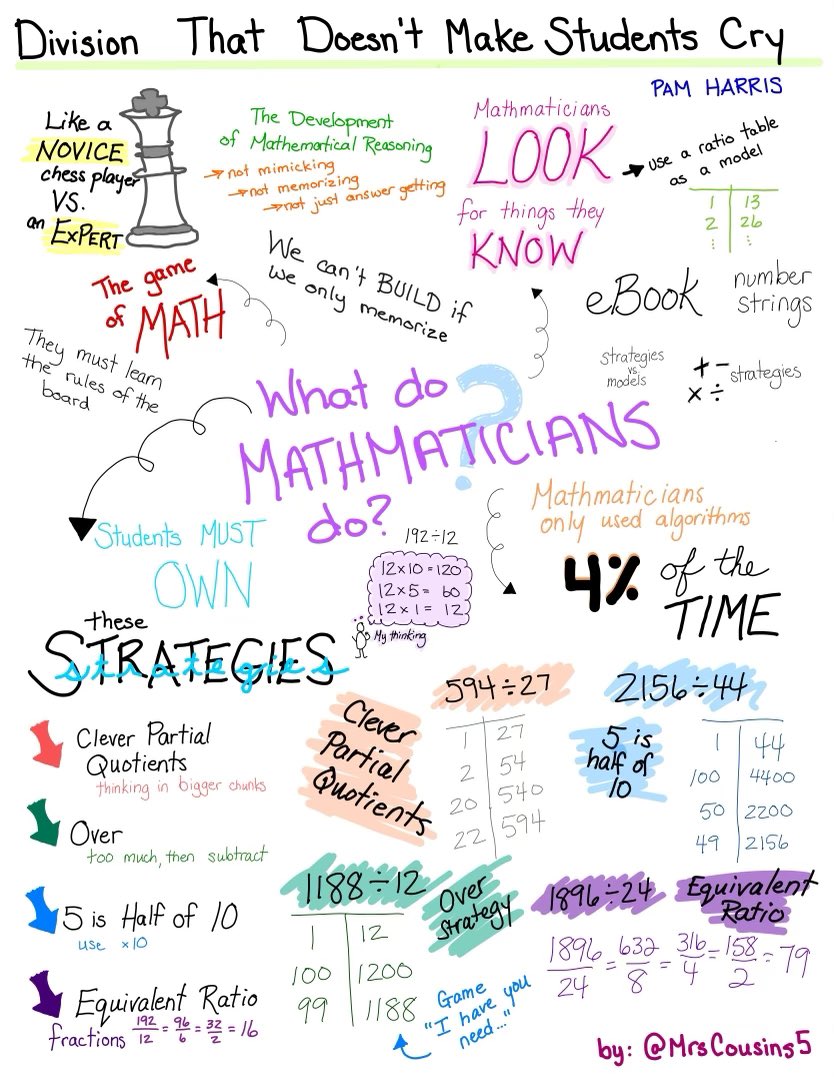 Division That Doesn't Make Students Cry
PAM HARRIS
Like a
NOVICE
chess player
VS.
an EXPERT
The Development
of Mathematical Reasoning
→ not mimicking
→ not memorizing
→ not just answer getting
Mathmaticians
LOOK
for things they
KNOW
→ use a ratio table
as a model
1 | 13
2 | 26
⋮ | ⋮
The game
of MATH
We can't BUILD if
we only memorize
eBook
number
strings
strategies
vs.
models
+ -
× ÷ strategies
They must learn
the rules of the
board
What do
MATHMATICIANS
do?
?
Students MUST
OWN
these
STRATEGIES
strategies
192÷12
12×10=120
12×5= 60
12×1= 12
My thinking
Mathmaticians
only used algorithms
4% of the
TIME
Clever Partial
Quotients
thinking in bigger chunks
Over
too much, then subtract
5 is Half of 10
use ×10
Equivalent Ratio
fractions 192/12 = 96/6 = 32/2 = 16
Clever
Partial
Quotients
594÷27
1 | 27
2 | 54
20 | 540
22 | 594
2156÷44
5 is
half of
10
1 | 44
100 | 4400
50 | 2200
49 | 2156
1188÷12
Over
Strategy
1 | 12
100 | 1200
99 | 1188
Game
"I have you
need..."
1896÷24
Equivalent
Ratio
1896/24 = 632/8 = 316/4 = 158/2 = 79
by: @MrsCousins5